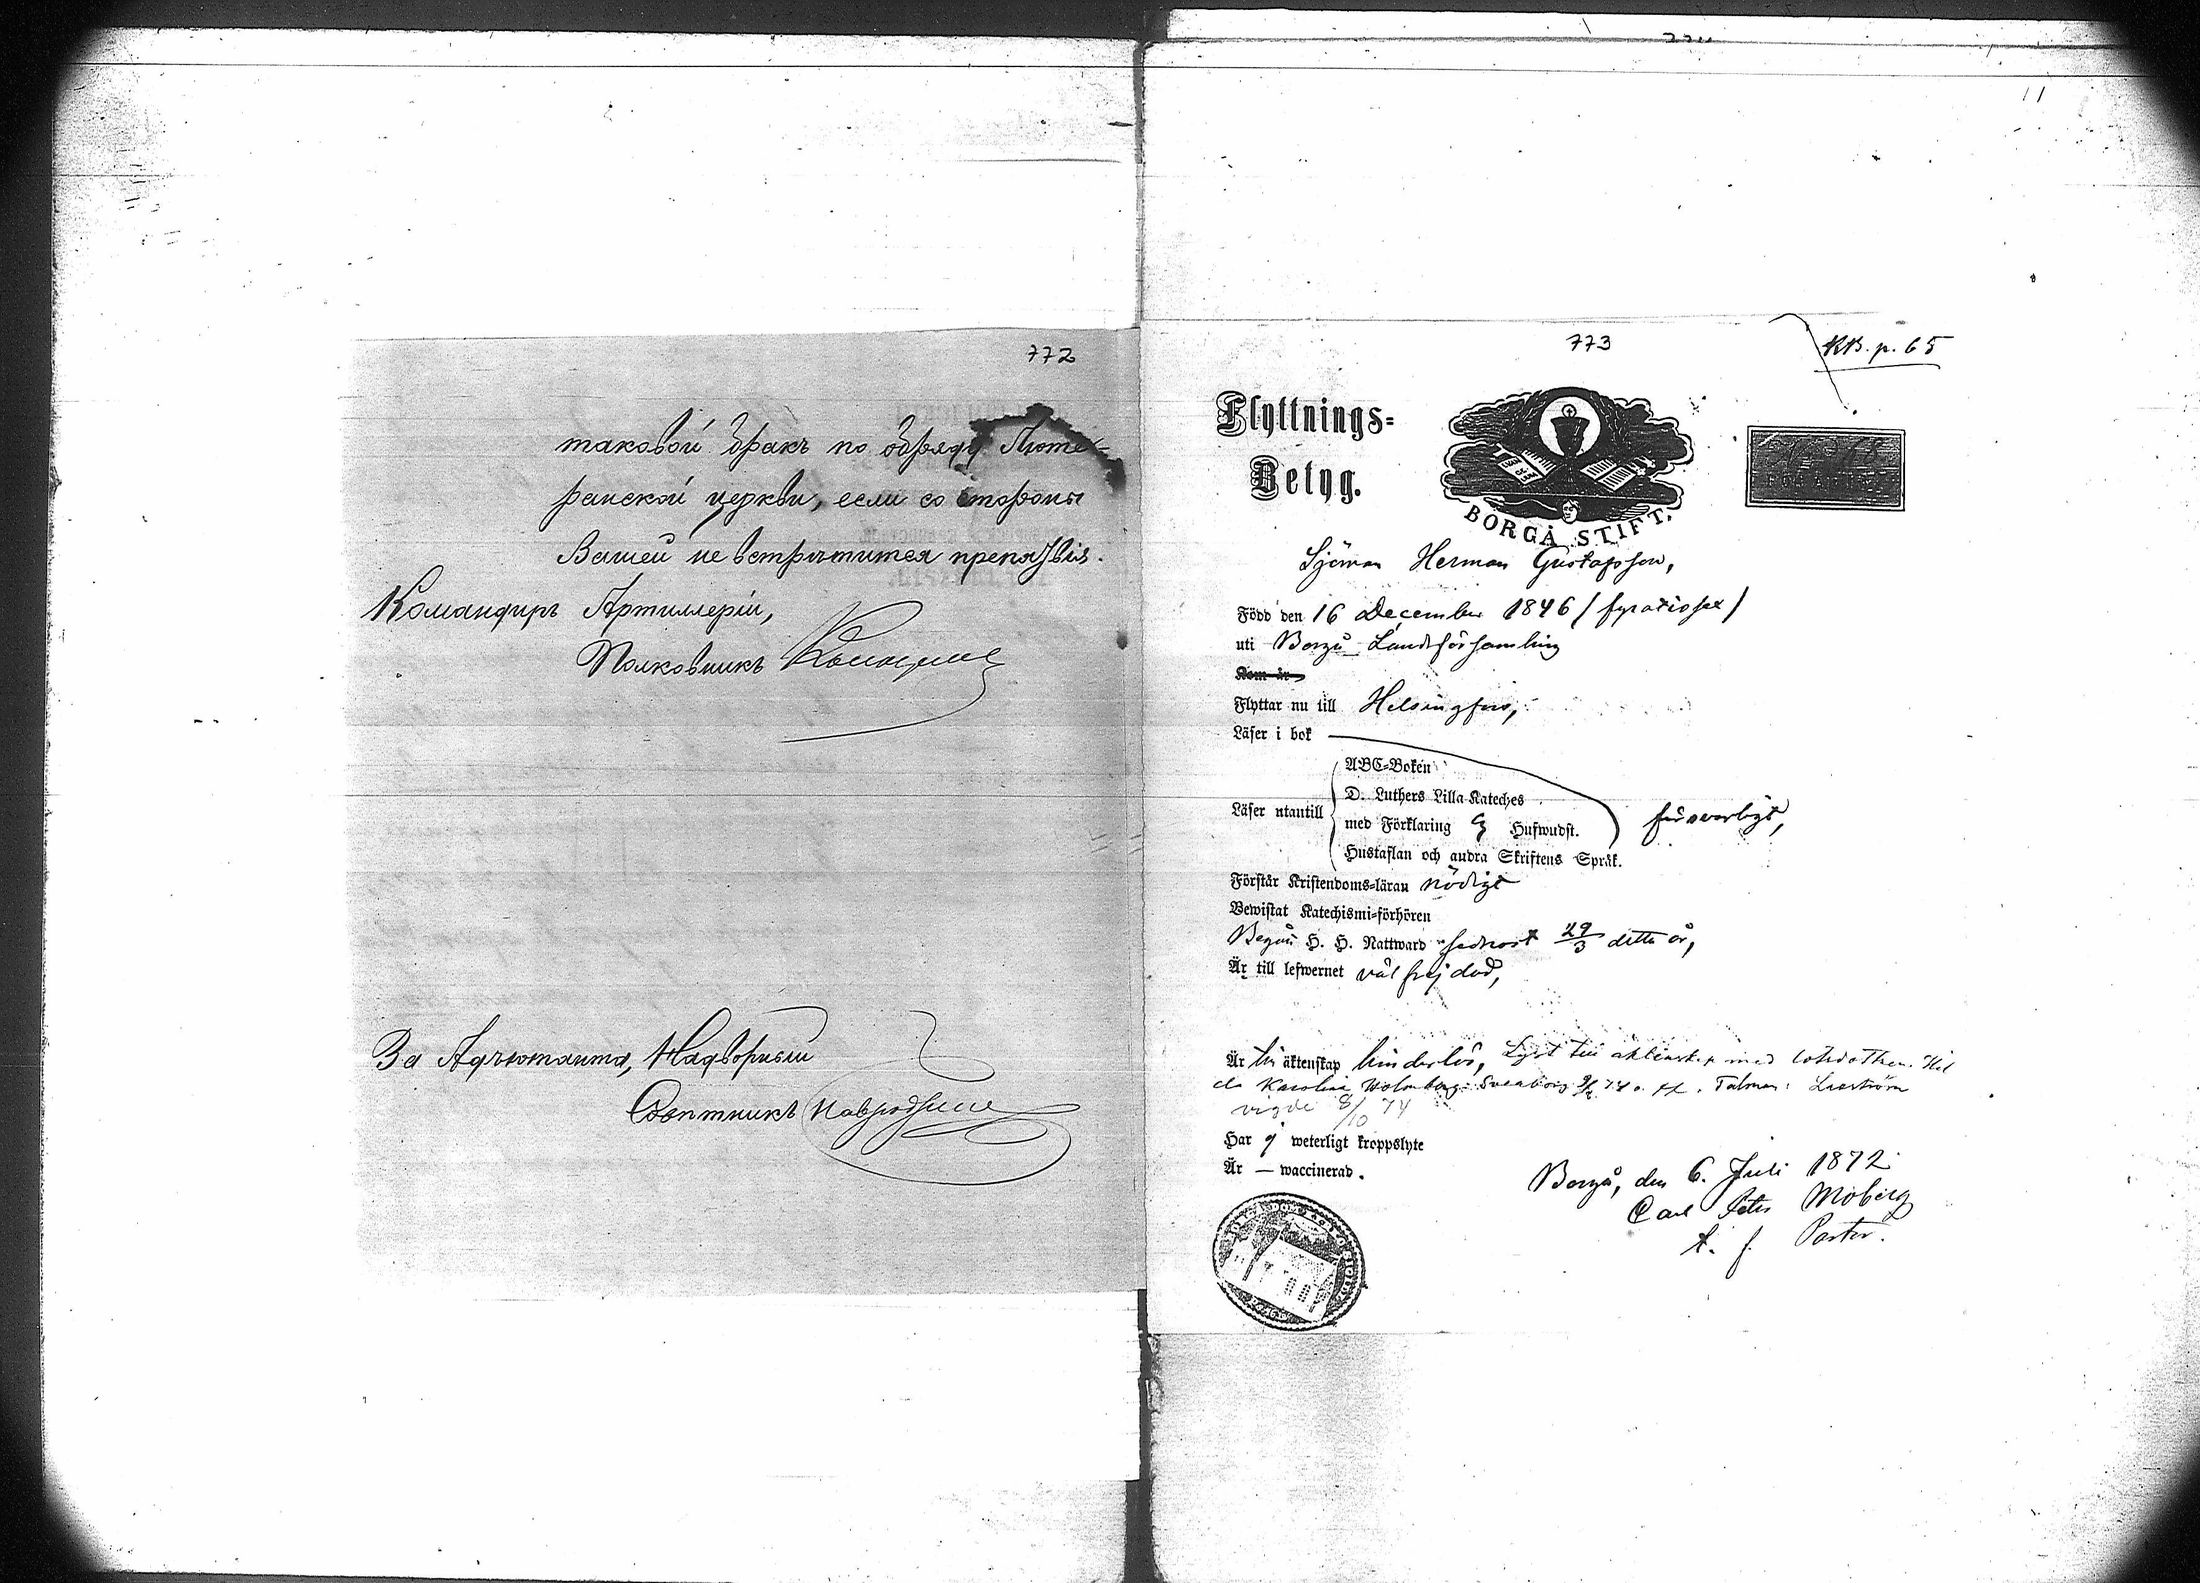 772
таковой бракъ по обряду Люте-
ранской церкви, если со стороны
Вашей не встрѣтится препятствія.
Командиръ Артиллеріи,
Полковникъ
За Адъютанта, Надворный
Совѣтникъ
773
KB. p. 65
Flyttnings=
Betyg.
BORGÅ STIFT.
Sjöman Herman Gustafsson,
Född den 16 December 1846 / fyratiosex /
uti Borgå Landsförsamling
Kom år
Flyttar nu till Helsingfors,
Läser i bok
ABC=Boken
D. Luthers Lilla Kateches
Läser utantill
med Förklaring Hufwudst.
försvarligt,
Hustaflan och andra Skriftens Språk.
Förstår Kristendoms=läran nödigt
Bewistat Katechismi=förhören
Begått H. H. Nattward sednast 29/3 detta år,
Är till lefwernet väl frejdad,
Är till äktenskap hinderlös, Lyst till äktenskap med Hil
da Karolina Sveaborg 74 Talman:
vigde 8/10 74
Har ej weterligt kroppslyte
Är — waccinerad.
Borgå, den 6. Juli 1872
Carl Peter Moberg
t. f. Pastor.